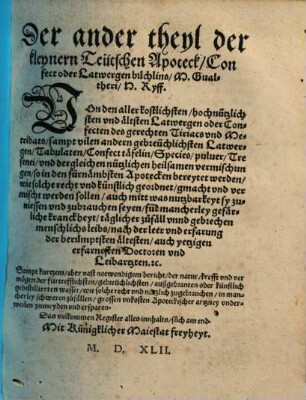 Der ander theyl der
kleynern Teütschen Apoteck/ Con
fect oder Latwergen büchlins/ M. Gual-
theri/ H. Ryff.
VOn den aller kostlichsten/ hochnützlich
sten vnd ältesten Latwergen oder Con-
fecten des gerechten Tiriacs vnd Me-
tridats/ sampt vilen andern gebreüchlichsten Latwer-
gen/ Tabulaten/ Confect täfelin/ Species/ puluer/ Tre
senei/ vnd dergleichen nützlichen heilsamen vermischun
gen/ so in den fürnämbsten Apotecken bereytet werden/
wie solche recht vnd künstlich geordnet/ gmacht vnd ver
mischt werden sollen/ auch mitt was nutzbarkeyt sy zu
niessen vnd zubrauchen seyen/ für mancherley gefär-
liche kranckheyt/ tägliche zůfäll vnnd gebrechen
menschlichs leibs/ nach der leer vnd erfarung
der berümptsten ältesten/ auch yetzigen
erfarnesten Doctoren vnd
Leibartzten. ꝛc.
Sampt kurtzem/ aber vast notwendigem bericht/ der natur/ krefft vnd ver
mögen der fürtrefflichsten/ gebreüchlichsten/ außgebranten oder künstlich
gedistillierten wasser/ wie solche recht vnd nützlich zugebrauchen/ in man-
cherley schweren zůfällen/ grossen vnkosten Apoteckischer artzney vnder-
weilen zuuermyden vnd ersparen.
Das volkummen Register alles innhalts/ sůch am end.
Mit Künigklicher Maiestat freyheyt.
M. D. XLII.